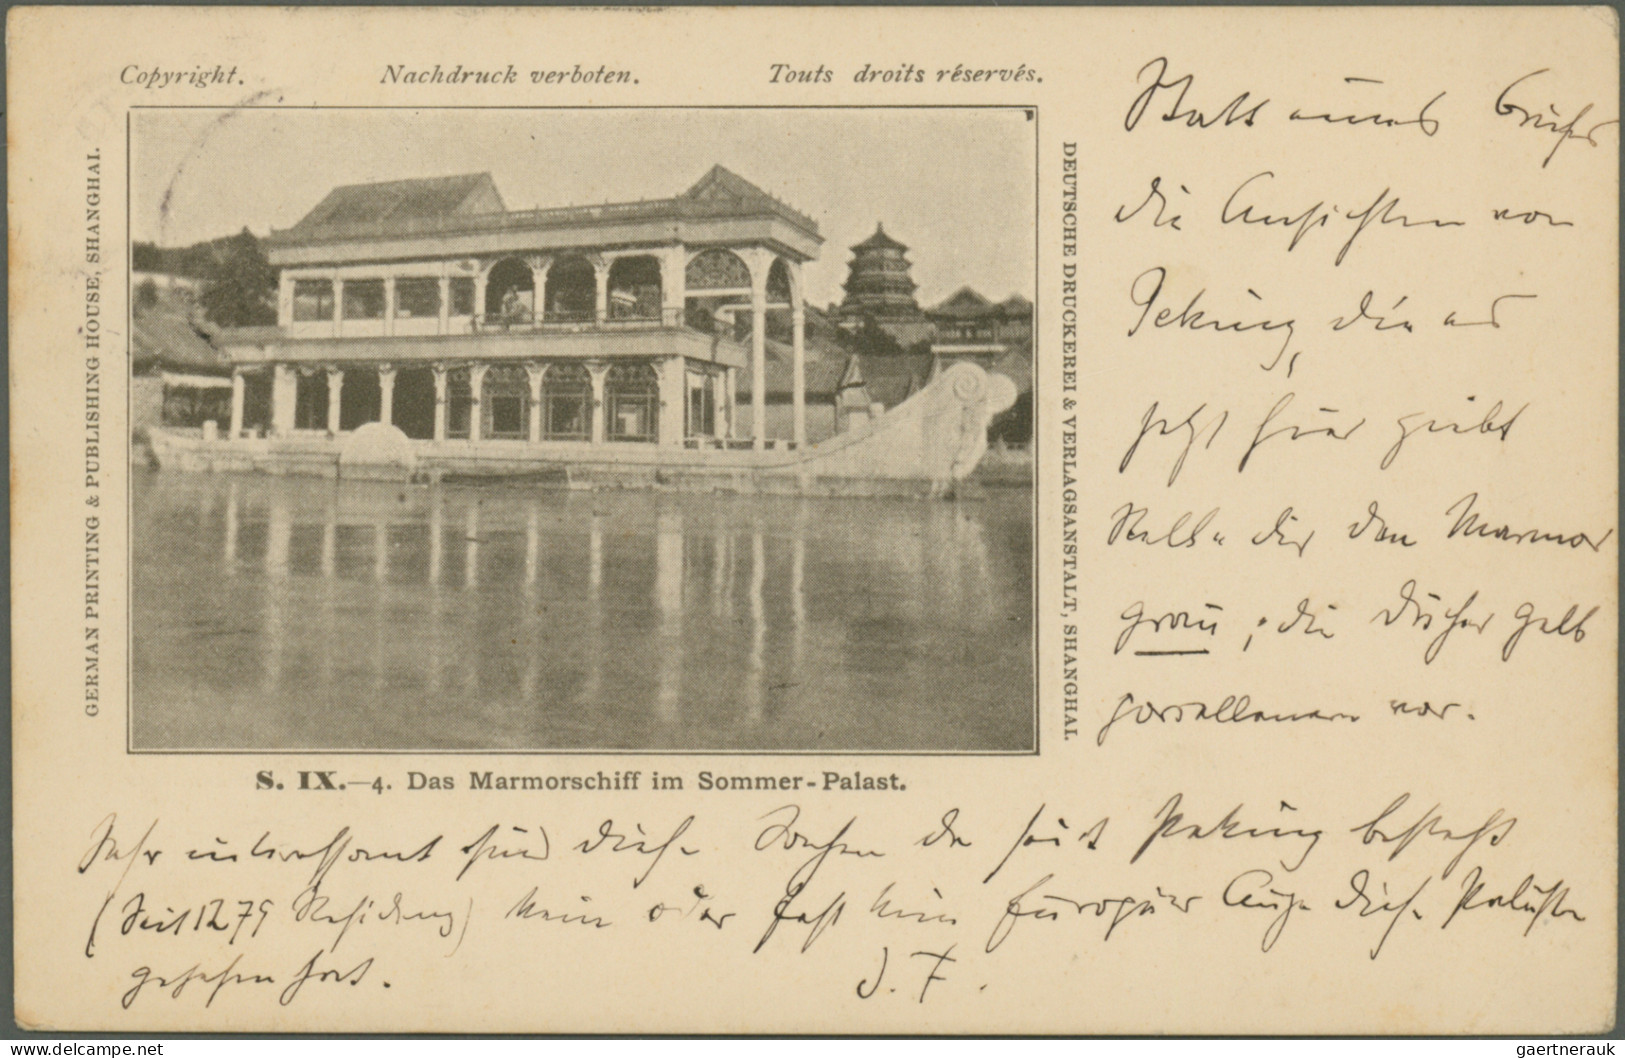 Copyright. Nachdruck verboten. Touts droits réservés.
GERMAN PRINTING & PUBLISHING HOUSE, SHANGHAI.
DEUTSCHE DRUCKEREI & VERLAGSANSTALT, SHANGHAI.
S. IX.—4. Das Marmorschiff im Sommer-Palast.
Statt eines Briefes
die Ansichten von
Peking, die es
jetzt hier giebt
Stelle dir den Marmor
grau; die Dächer gelb
porzellanen vor.
Sehr interessant sind diese Sachen da seit Peking besteht
(seit 1279 Residenz) kein oder fast kein europäer Auge diese Paläste
gesehen hat.
J. F.
www.delcampe.net
gaertnerauk